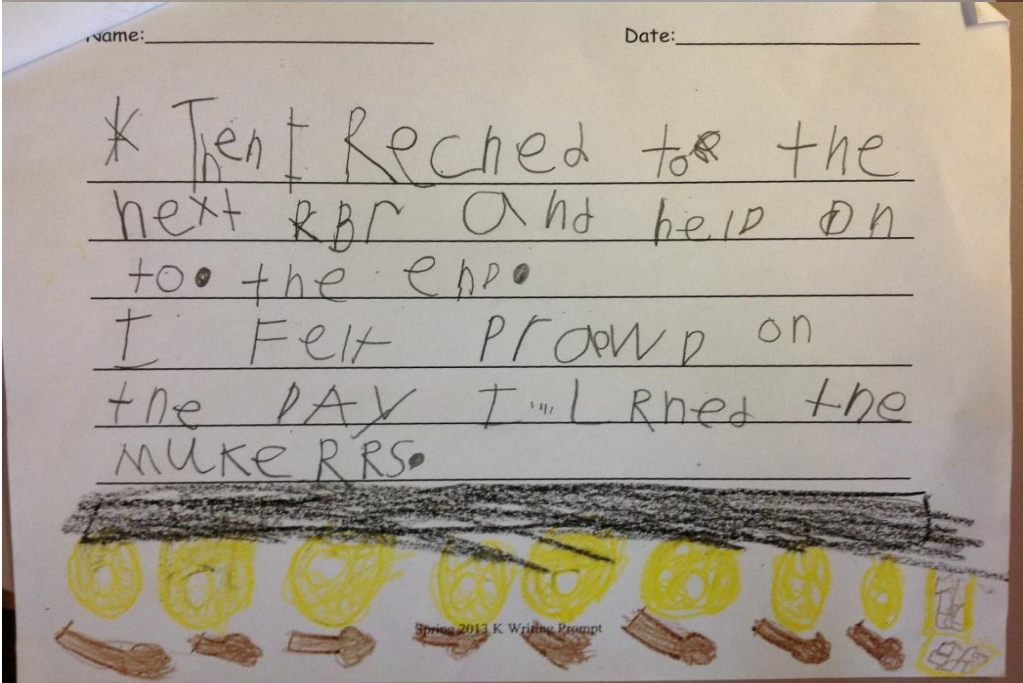 Name: Date:
* Then I Reched to the
next RBr And helD on
to. the enD.
I Felt PraowD on
the DAY I LRned the
MUKe RRS.
Spring 2013 K Writing Prompt